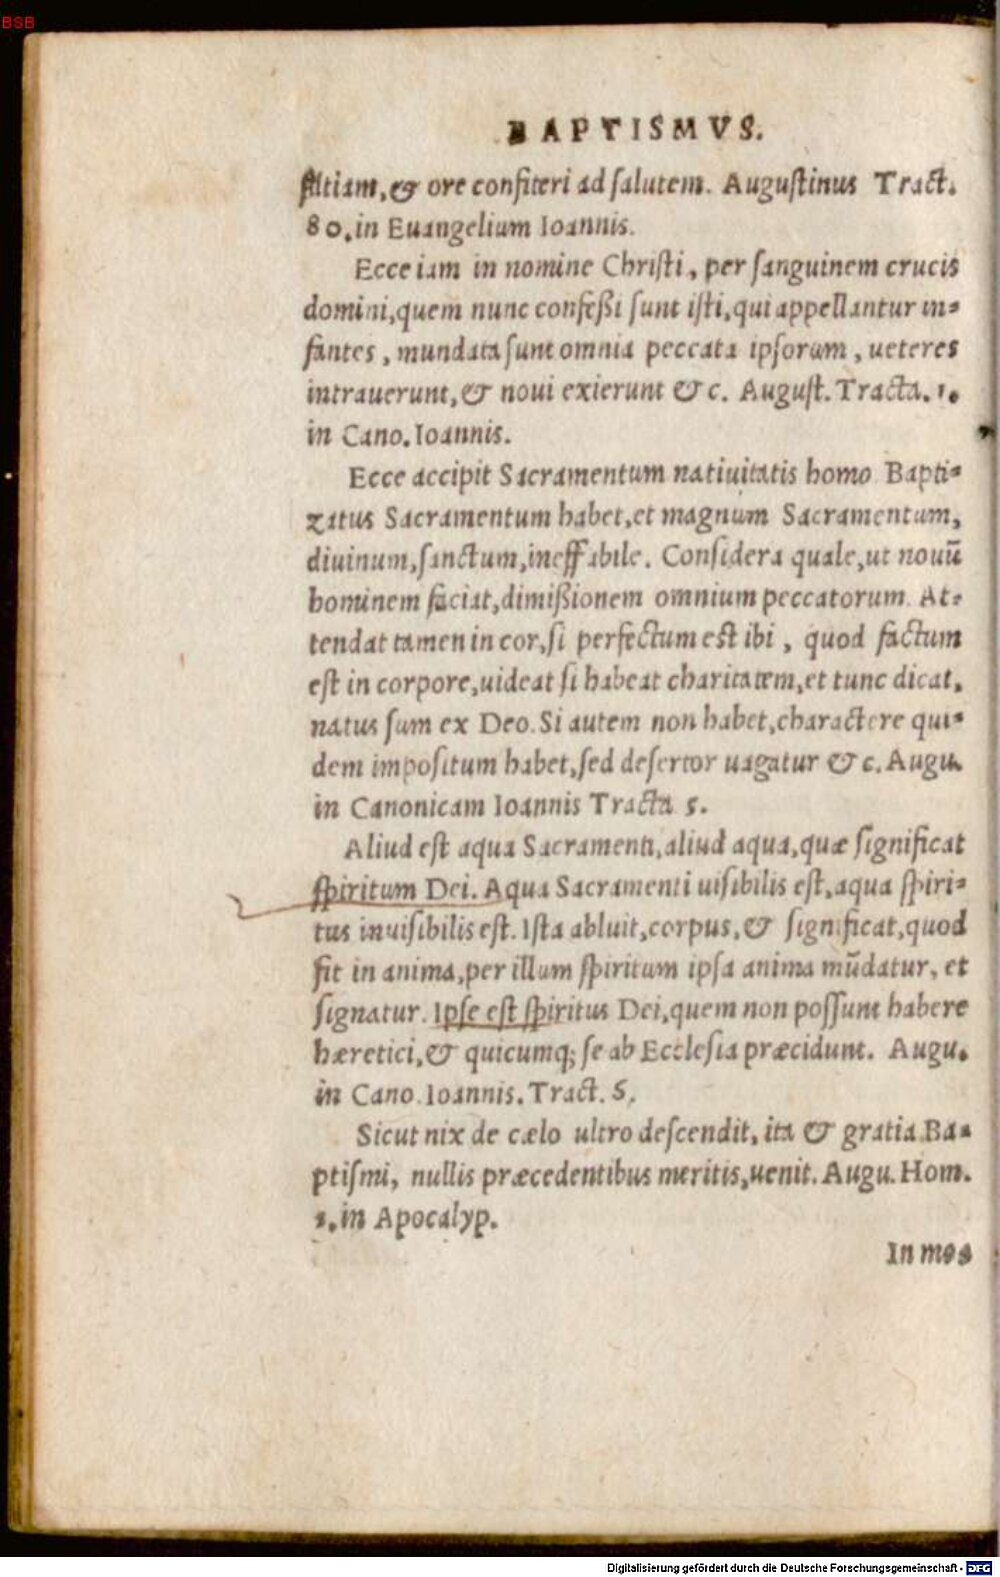 BSB
BAPTISMVS.
stitiam, & ore confiteri ad salutem. Augustinus Tract.
80. in Euangelium Ioannis.
Ecce iam in nomine Christi, per sanguinem crucis
domini, quem nunc confeßi sunt isti, qui appellantur in-
fantes, mundata sunt omnia peccata ipsorum, ueteres
intrauerunt, & noui exierunt &c. August. Tracta. 1.
in Cano. Ioannis.
Ecce accipit Sacramentum natiuitatis homo Bapti-
zatus Sacramentum habet, et magnum Sacramentum,
diuinum, sanctum, ineffabile. Considera quale, ut nouū
hominem faciat, dimißionem omnium peccatorum. At-
tendat tamen in cor, si perfectum est ibi, quod factum
est in corpore, uideat si habeat charitatem, et tunc dicat,
natus sum ex Deo. Si autem non habet, charactere qui-
dem impositum habet, sed desertor uagatur &c. Augu.
in Canonicam Ioannis Tracta 5.
Aliud est aqua Sacramenti, aliud aqua, quæ significat
spiritum Dei. Aqua Sacramenti uisibilis est, aqua spiri-
tus inuisibilis est. Ista abluit, corpus, & significat, quod
fit in anima, per illum spiritum ipsa anima mūdatur, et
signatur. Ipse est spiritus Dei, quem non possunt habere
hæretici, & quicumq; se ab Ecclesia præcidunt. Augu.
in Cano. Ioannis. Tract. 5.
Sicut nix de cælo ultro descendit, ita & gratia Ba-
ptismi, nullis præcedentibus meritis, uenit. Augu. Hom.
1. in Apocalyp.
In mea
Digitalisierung gefördert durch die Deutsche Forschungsgemeinschaft - DFG